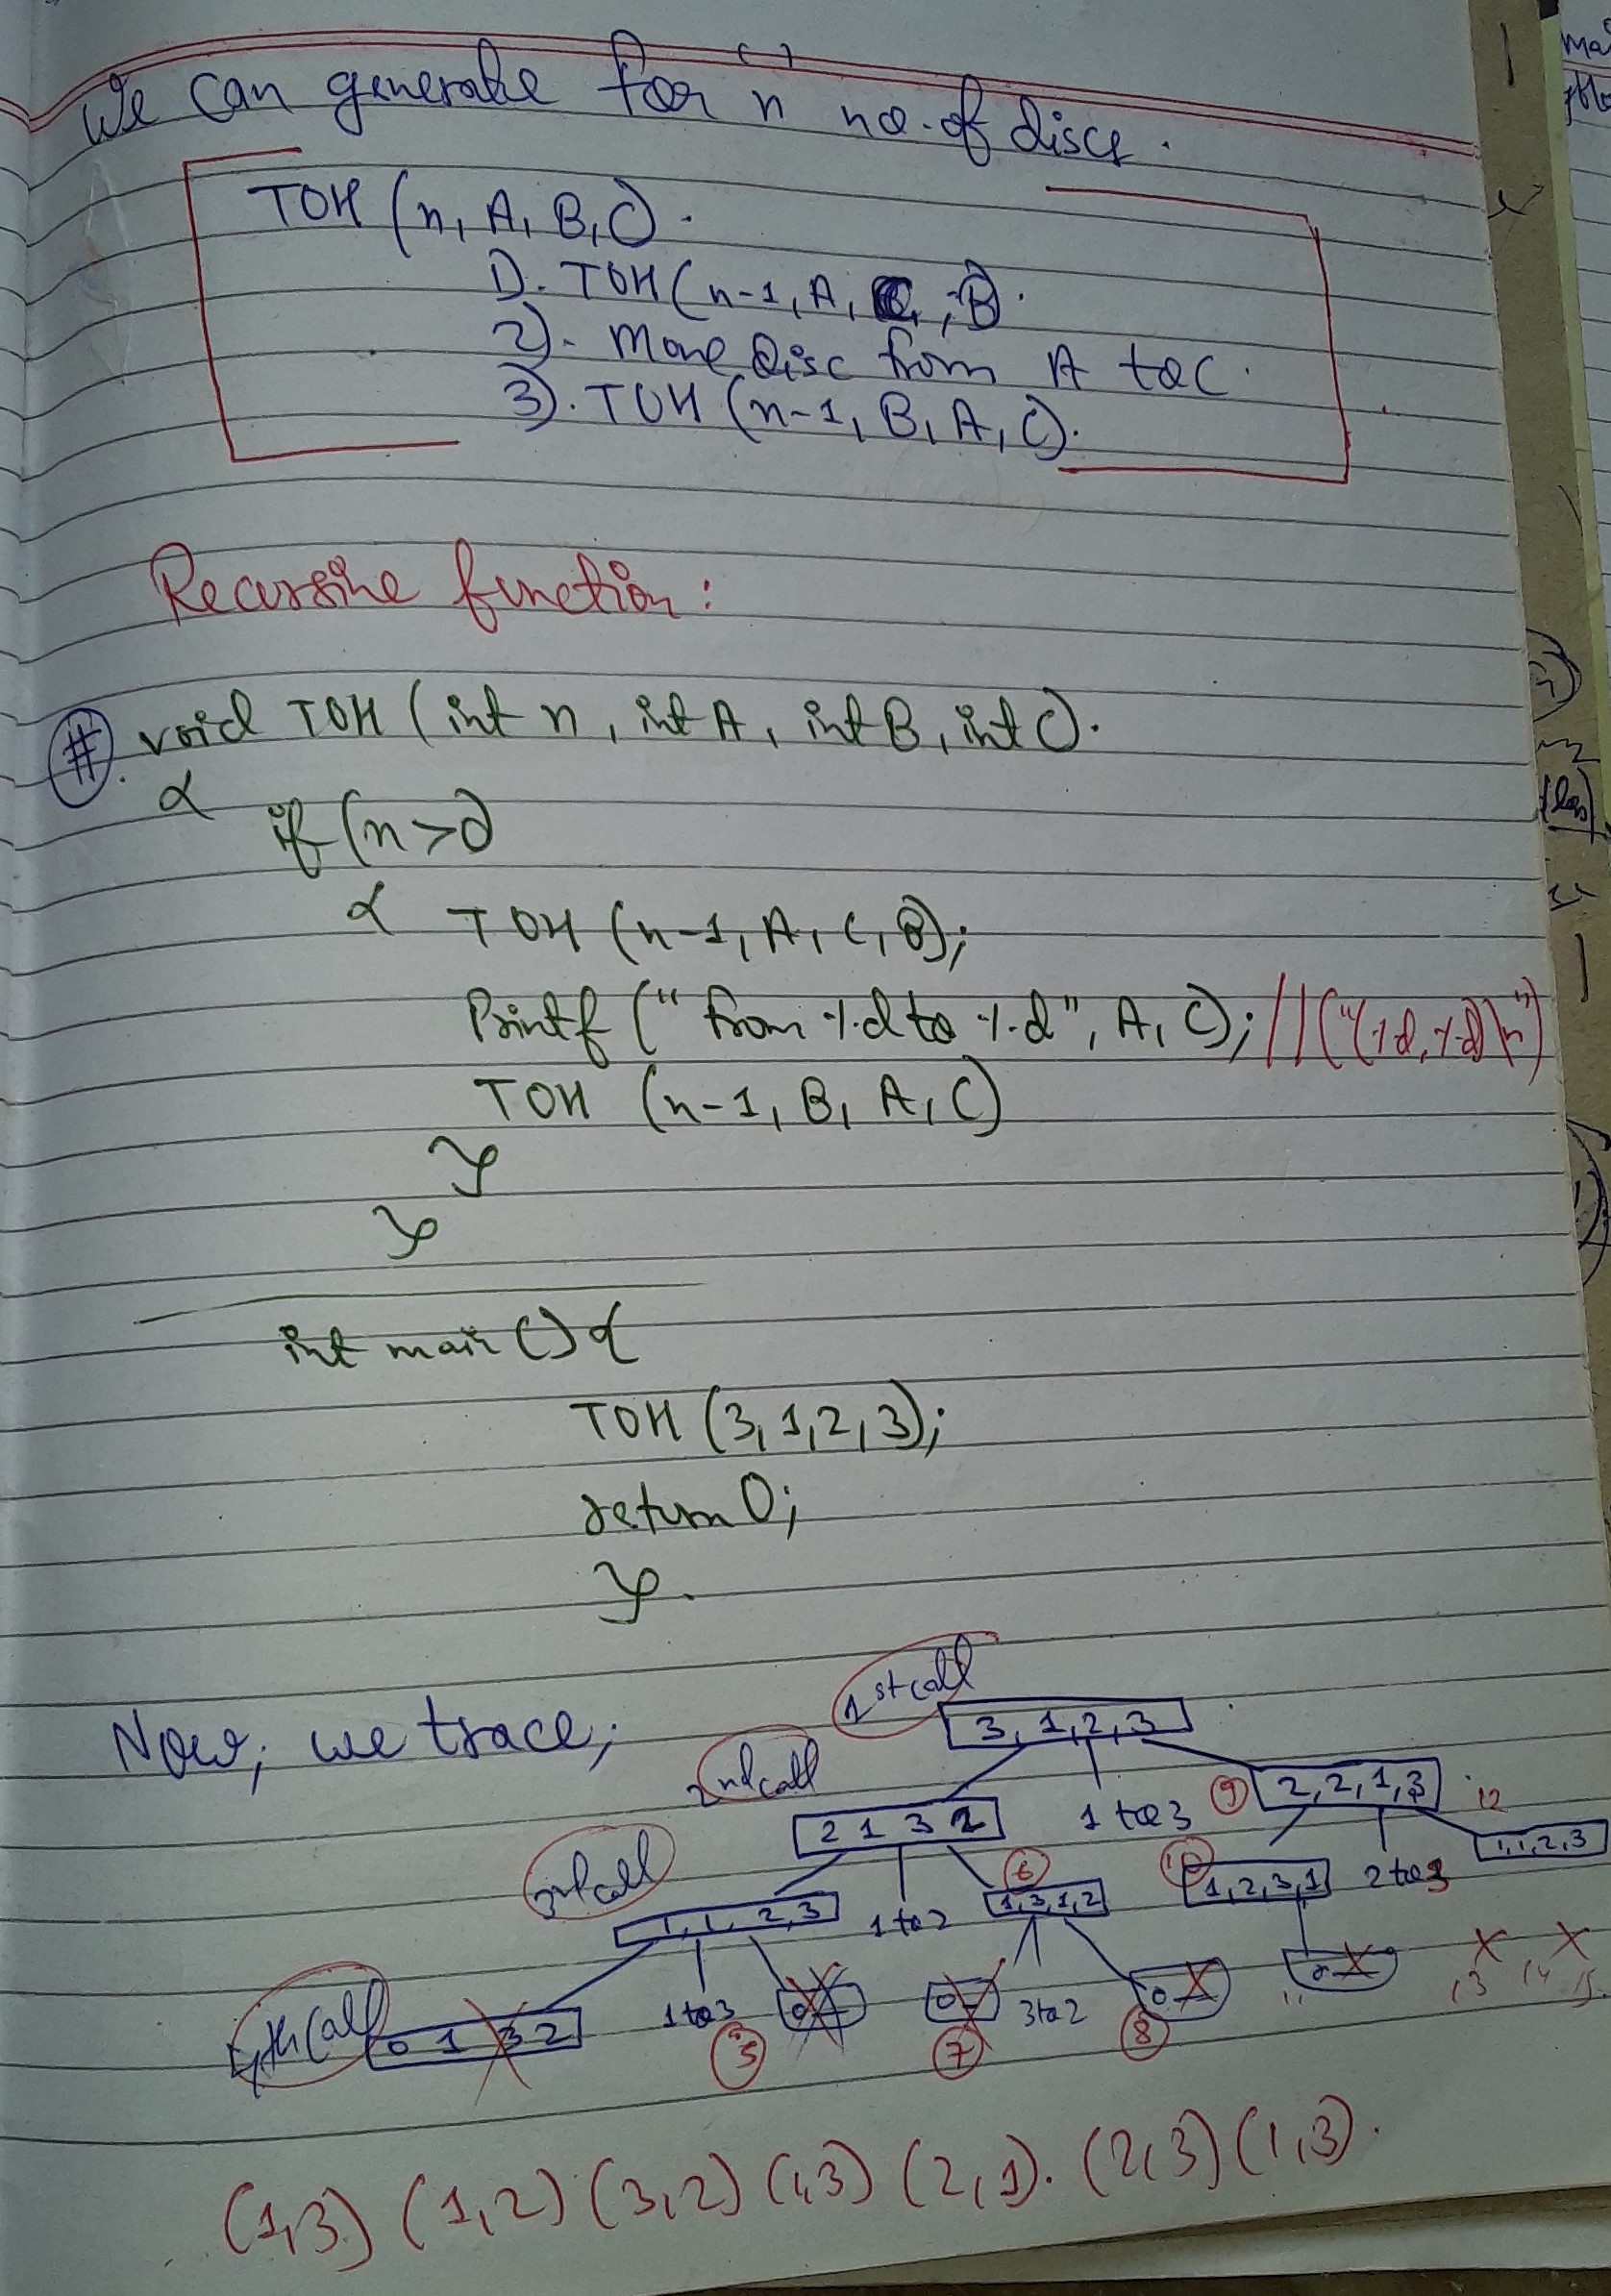 We can generate for n no. of discs.
TOH (n, A, B, C).
1). TOH (n-1, A, C, B).
2). Move Disc from A to C.
3). TOH (n-1, B, A, C).
Recursive function:
#. void TOH (int n, int A, int B, int C).
{
if (n>0)
{ TOH (n-1, A, C, B);
Printf (" from %d to %d", A, C); //("(%d, %d)\n")
TOH (n-1, B, A, C)
}
}
int main () {
TOH (3, 1, 2, 3);
return 0;
}.
Now, we trace;
1st call
3, 1, 2, 3
2nd call
2 1 3 2
1 to 3
9
2, 2, 1, 3
12
3rd call
1, 1, 2, 3
1 to 2
6
1, 3, 1, 2
10
1, 2, 3, 1
2 to 3
1, 1, 2, 3
4th call
0 1 3 2
1 to 3
5
0
0
7
3 to 2
0
8
0
11
13 14 15
(1,3) (1,2) (3,2) (1,3) (2,1). (2,3) (1,3).